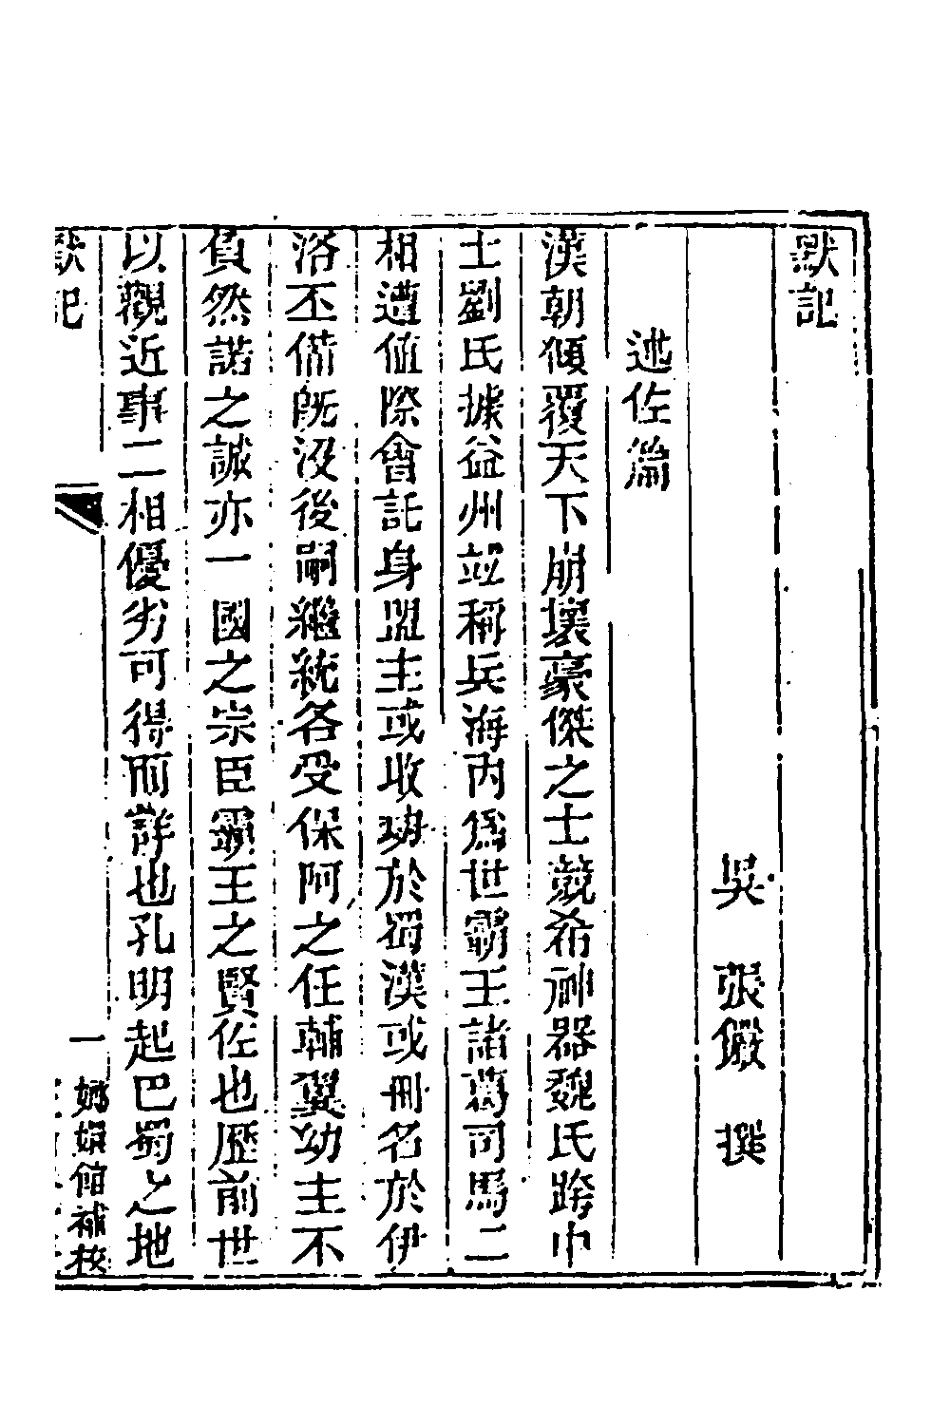 默記
吳　張儼　撰
述佐篇
漢朝傾覆天下崩壞豪傑之士競希神器魏氏跨中
土劉氏據益州竝稱兵海內爲世霸王諸葛司馬二
相遭値際會託身盟主或收功於蜀漢或冊名於伊
洛丕備既沒後嗣繼統各受保阿之任輔翼幼主不
負然諾之誠亦一國之宗臣霸王之賢佐也歷前世
以觀近事二相優劣可得而詳也孔明起巴蜀之地
默記
一
嫏嬛館補校